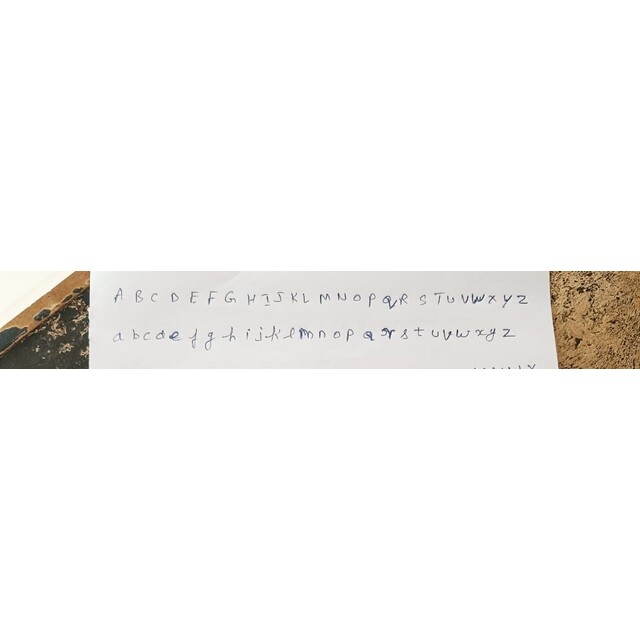 A B C D E F G H I J K L M N O P Q R S T U V W X Y Z
a b c d e f g h i j k l m n o p q r s t u v w x y z